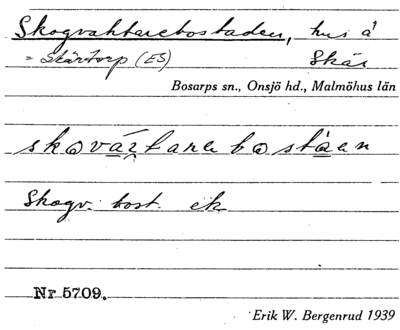 Skogvaktarebostaden, hus å
= Skärtorp (ES) Skär
Bosarps sn., Onsjö hd., Malmöhus län
skovártarebostaen
Skogv. bost. ek
Nr 5709.
Erik W. Bergenrud 1939